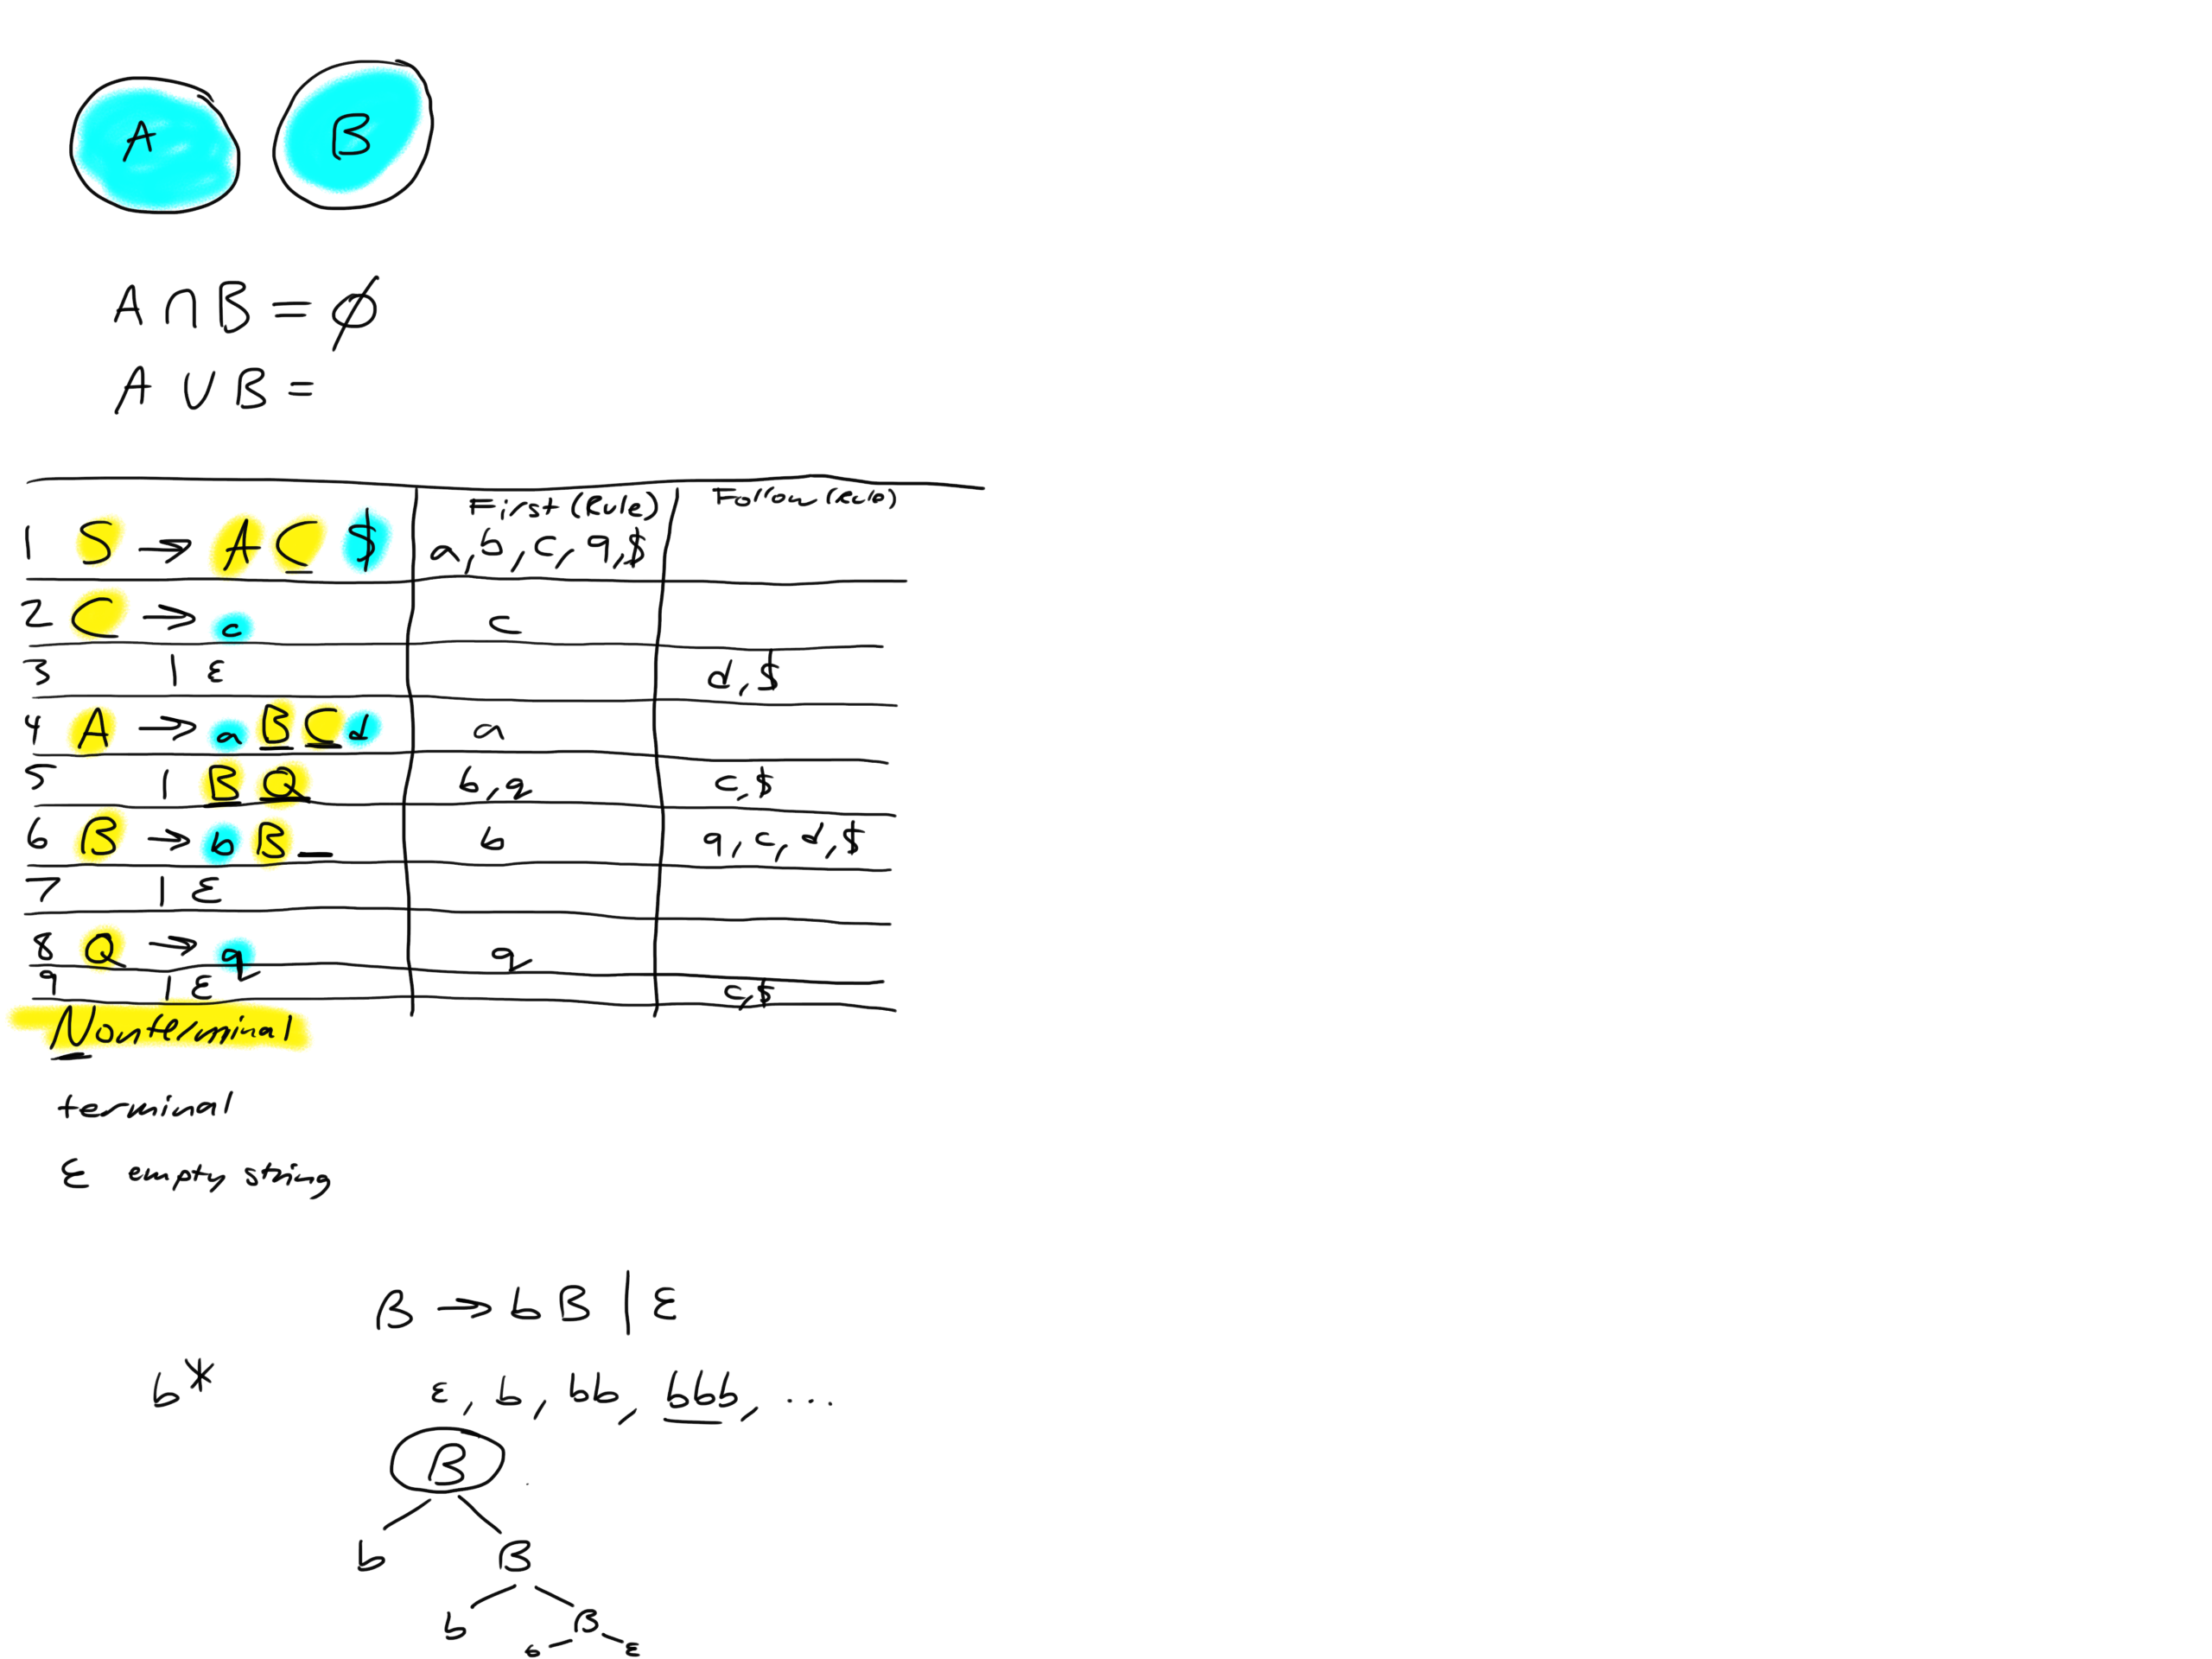 A B
A ∩ B = ∅
A ∪ B =
First (Rule) Follow (Rule)
1 S → A C $ a, b, c, q, $
2 C → c c
3 | ε d, $
4 A → a B C d a
5 | B Q b, q c, $
6 B → b B _ b q, c, d, $
7 | ε
8 Q → q q
9 | ε c, $
Nonterminal
terminal
ε empty string
B → b B | ε
b* ε, b, bb, bbb, ...
B
b B
b B
b ε